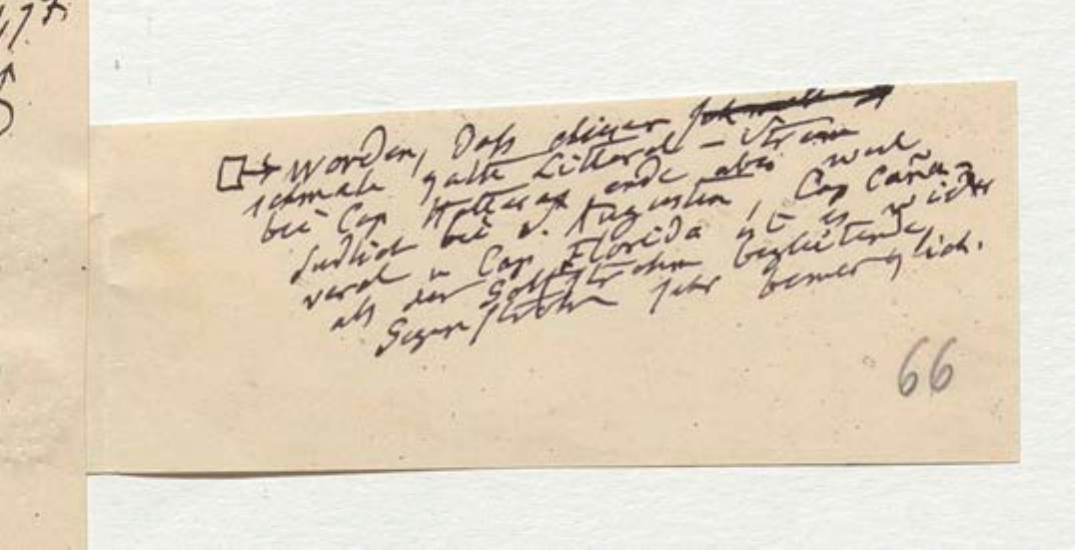 worden, daß dieser
schmale kalte Littoral-Strom
bei Cap Hatteras ende aber weit
südlich bei S. Augustin, Cap Caña
veral u Cap Florida ist es wider
als der Golfstrohm begleitende
Gegenstrohm sehr bemerklich.
66